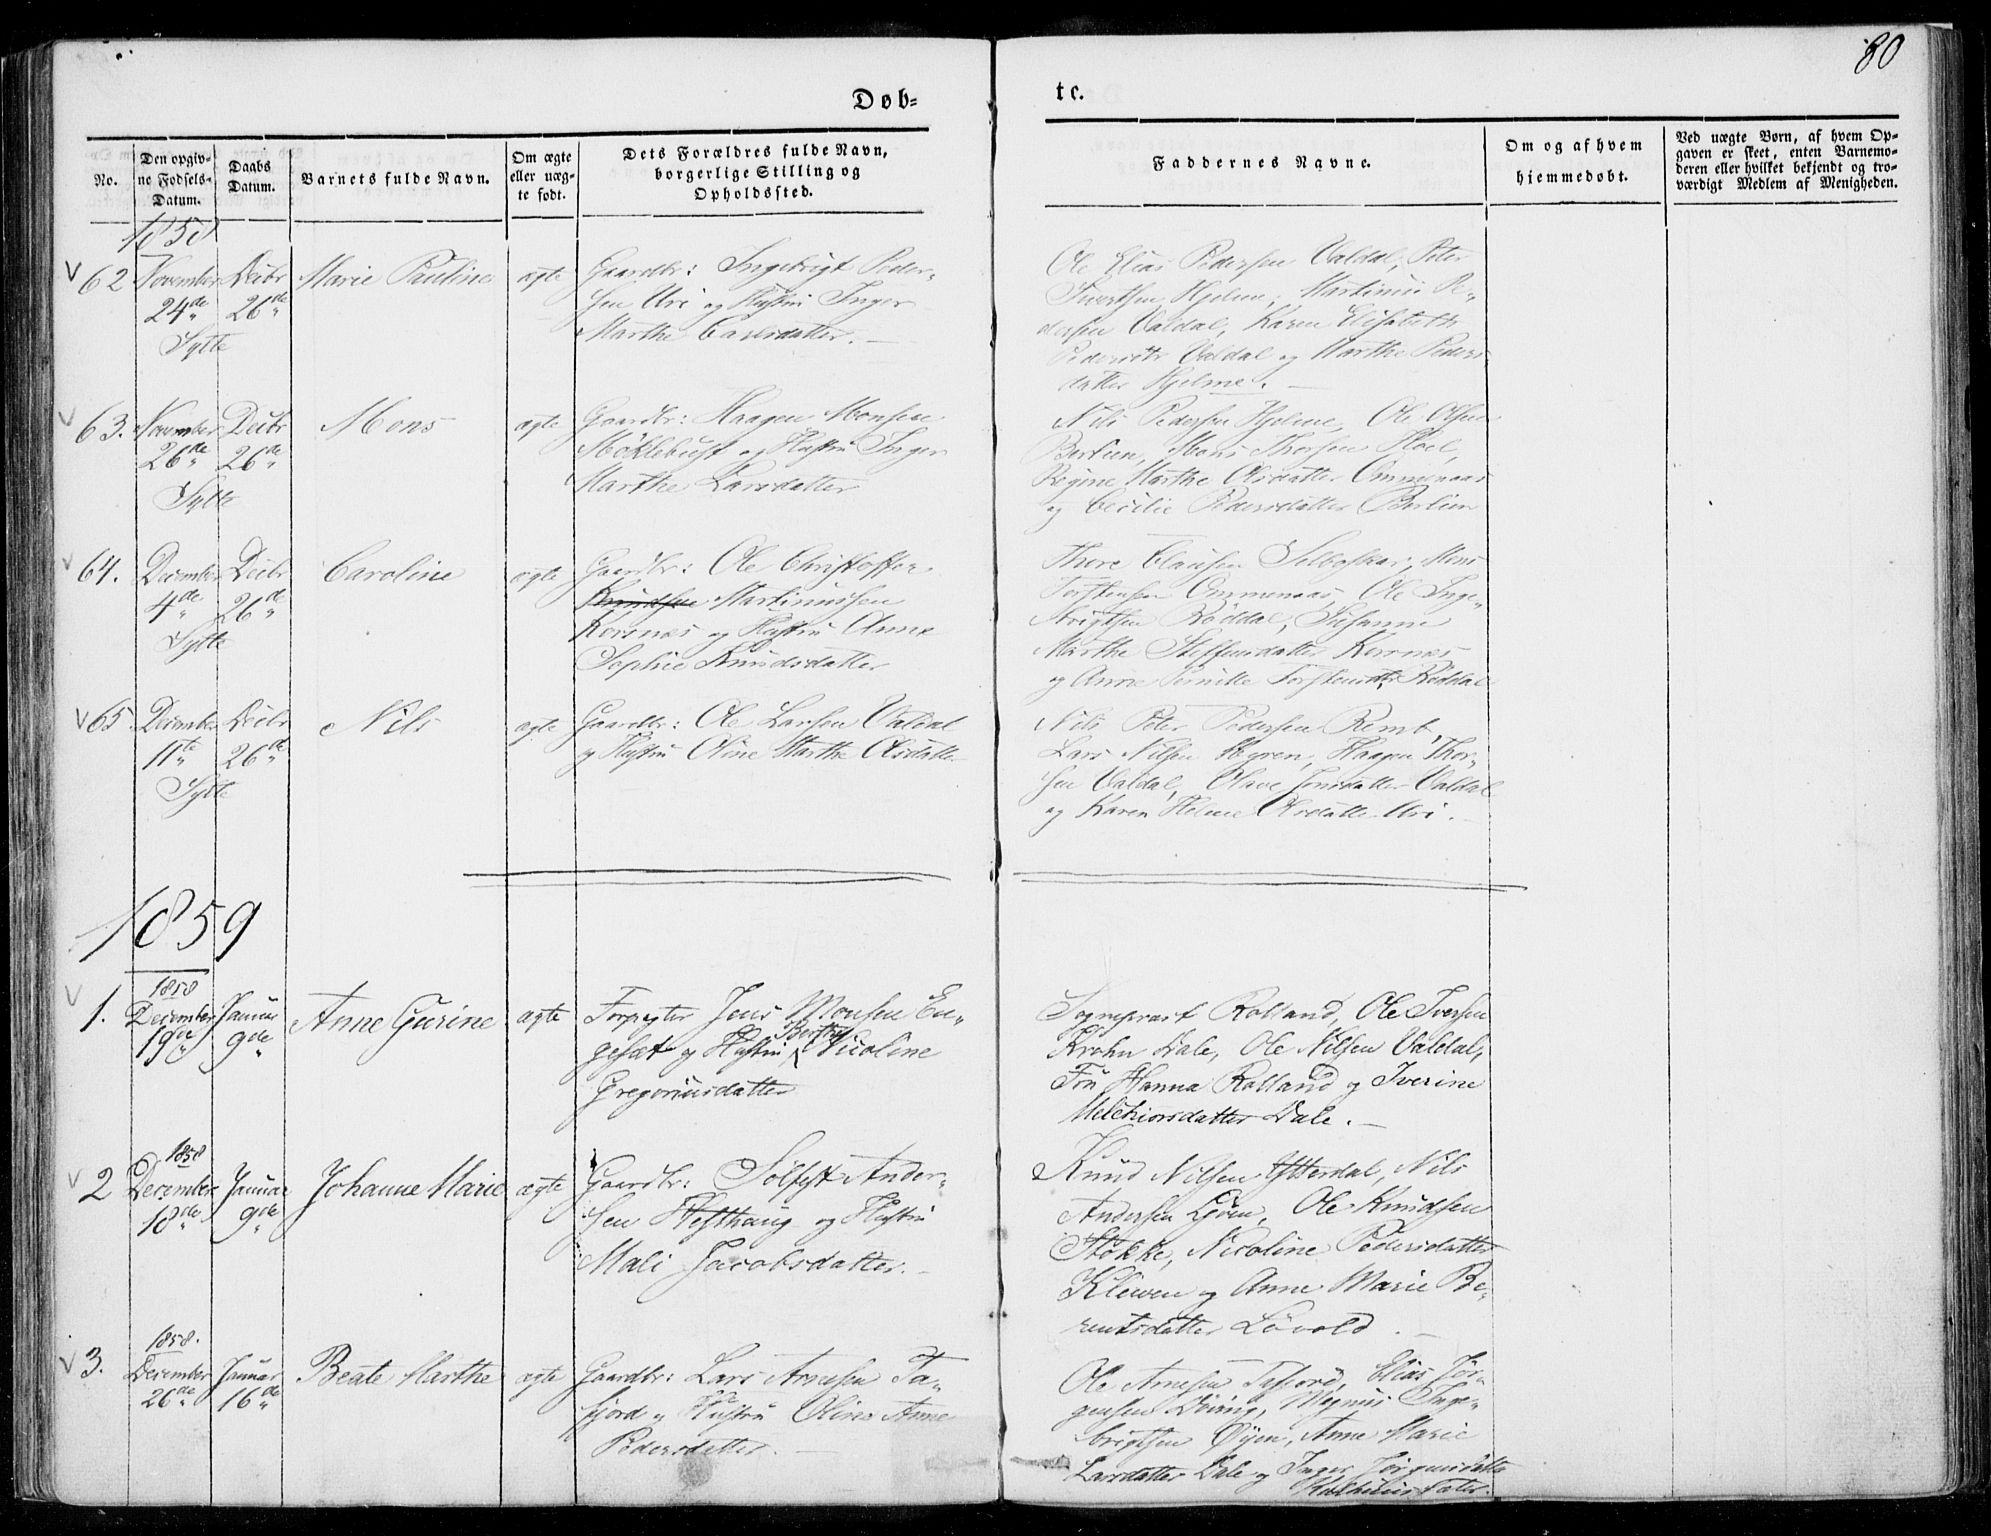 80
Døb-
te.
No.
Den opgiv-
ne Fødsels-
Datum.
Daabs
Datum.
Barnets fulde Navn.
Om ægte
eller uæg-
te født.
Dets Forældres fulde Navn,
borgerlige Stilling og
Opholdssted.
Faddernes Navne.
Om og af hvem
hjemmedøbt.
Ved uægte Børn, af hvem Op-
gaven er skeet, enten Barnemo-
deren eller hvilket bekjendt og tro-
værdigt Medlem af Menigheden.
1858
62
November
24de
Sylte
Decbr
26de
Marie Pauline
ægte
Gaardbr: Ingebrigt Peder-
sen Uri og Hustru Inger
Marthe Carlsdatter.
Ole Elias Pedersen Valdal, Peter
Ivertsen Hjelme, Martinus Pe-
dersen Valdal, Karen Elisabeth
Pedersdtr Valdal og Marthe Peders
datter Hjelme.
63.
November
26de
Sylte
Decbr
26de
Mons
ægte
Gaardbr: Haagen Monsen
Möklebust og Hustru Inger
Marthe Larsdatter
Nils Pedersen Hjelme, Ole Olsen
Berlien, Mons Thorsen Hoel,
Regine Marthe Olsdatter Ommenaas
og Cecilie Pedersdatter Berlien
64.
December
4de
Sylte
Decbr
26de
Caroline
ægte
Gaardbr: Ole Christoffer
Knudsen Martinussen
Korsnæs og Hustru Anne
Sophie Knudsdatter
Thore Clausen Selboskar, Mons
Torstensen Ommenaas, Ole Inge-
brigtsen Röddal, Susanne
Marthe Steffensdatter Korsnæs
og Anne Pernille Torstensdtr Röddal
65
December
11te
Sylte
Decbr
26de
Nils
ægte
Gaardbr: Ole Larsen Valdal
og Hustru Oline Marthe Olsdatter
Nils Peter Pedersen Remb,
Lars Nilsen Myren, Haagen Thor-
sen Valdal, Olave Jonsdatter Valdal
og Karen Helene Olsdatter Uri.
1859
1.
1858
December
19de
Januar
9de
Anne Gurine
ægte
Forpagter Jens Monsen En-
gesæt og Hustru Berthe Nicoline
Gregoriusdatter
Sognepræst Rolland, Ole Iversen
Krohn Dale, Ole Nilsen Valdal,
Fru Hanna Rolland og Iverine
Melchiorsdatter Dale.
2
1858
December
18de
Januar
9de
Johanne Marie
ægte
Gaardbr: Sölfest Ander-
sen Hesthaug og Hustru
Mali Jacobsdatter.
Knud Nilsen Ytterdal, Nils
Andersen Ljöen, Ole Knudsen
Stokke, Nicoline Pedersdatter
Kleiven og Anne Marie Be-
rentsdatter Lövold.
3.
1858.
December
26de
Januar
16de
Beate Marthe
ægte
Gaardbr: Lars Arnesen Ta-
fjord og Hustru Oline Anne
Pedersdatter.
Ole Arnesen Tafjord, Elias Jör-
gensen Döving, Magnus Inge-
brigtsen Öijen, Anne Marie
Larsdatter Dale og Inger Jörgensdatter